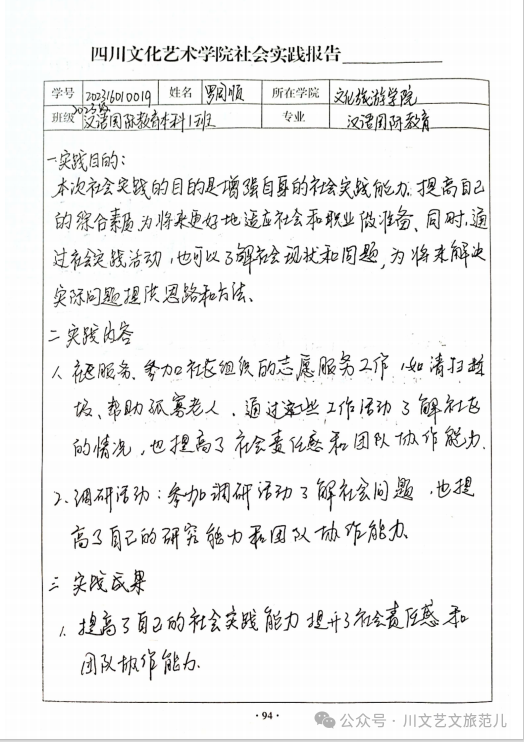 四川文化艺术学院社会实践报告
学号 202316010019 姓名 罗国顺 所在学院 文化旅游学院
班级 2023级汉语国际教育本科1班 专业 汉语国际教育
一实践目的:
本次社会实践的目的是增强自身的社会实践能力.提高自己
的综合素质为将来更好地适应社会和职业做准备、同时.通
过社会实践活动,也可以了解社会现状和问题,为将来解决
实际问题提供思路和方法、
二 实践内容
1、社区服务、参加社区组织的志愿服务工作,如清扫垃
圾、帮助孤寡老人、通过这些工作活动了解社区
的情况,也提高了社会责任感和团队协作能力.
2、调研活动:参加调研活动了解社会问题,也提
高了自己的研究能力和团队协作能力、
三 实践成果
1. 提高了自己的社会实践能力 提升了社会责任感和
团队协作能力.
·94·
公众号·川文艺文旅范儿